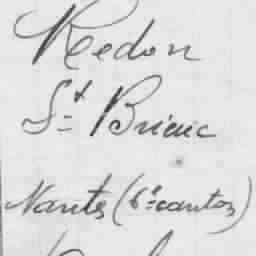 Redon
St Brieuc
Nantes (6e canton)